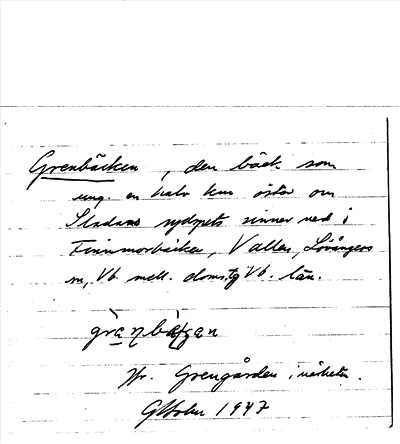 Grenbäcken, den bäck som
ung. en halv km öster om
Sladans sydspets rinner ned i
Finnmorbäcken, Vallen, Lövångers
sn, Vb. mell. doms. Vb. län.
Jfr. Grengården i närheten.
GHolm 1947